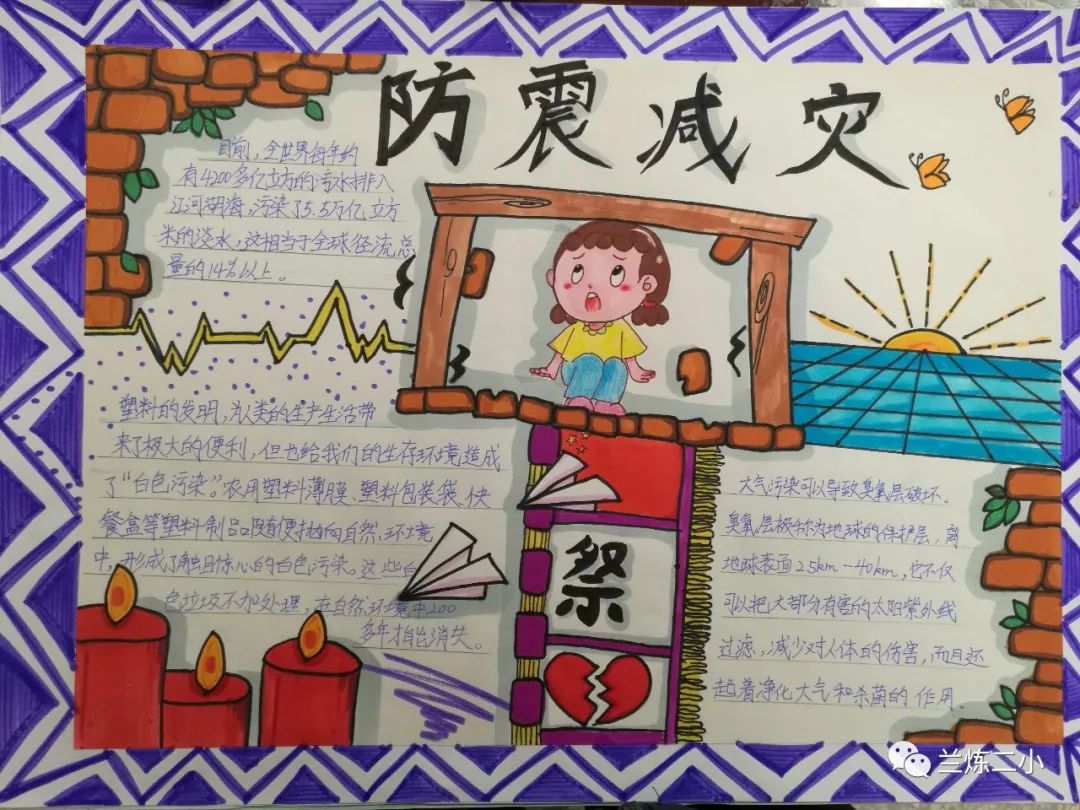 防震减灾
目前，全世界每年约
有4200多亿立方的污水排入
江河胡海，污染了5.5万亿立方
米的淡水，这相当于全球径流总
量的14%以上。
塑料的发明，为人类的生产生活带
来了极大的便利，但也给我们的生存环境造成
了“白色污染”。农用塑料薄膜、塑料包装袋、快
餐盒等塑料制品随便抛向自然环境
中，形成了触目惊心的白色污染。这些白
色垃圾不加处理，在自然环境中200
多年才能消失。
祭
大气污染可以导致臭氧层破坏。
臭氧层被称为地球的保护层，离
地球表面25km—40km，它不仅
可以把大部分有害的太阳紫外线
过滤，减少对人体的伤害，而且还
起着净化大气和杀菌的作用。
兰炼二小